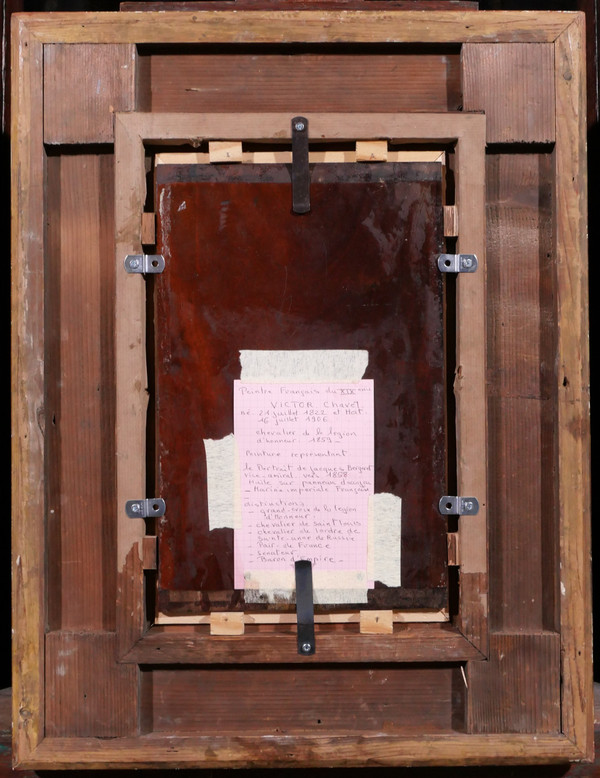 Peintre Français du XIX ème
VICTOR Chavet.
né. 21 juillet 1822 et Mort.
16 juillet 1906
chevalier de la legion
d'honneur. 1859 _
Peinture representant
le Portrait de jacques
vice-amiral. vers. 1858
Huile sur panneau d'acajou
_ Marine imperiale Française
distinctions
_ grand-croix de la legion
d'Honneur.
_ chevalier de saint louis
_ chevalier de lordre de
Sainte-anne de Russie
_ Pair-de France
_ Senateur
_ Baron d'Empire _